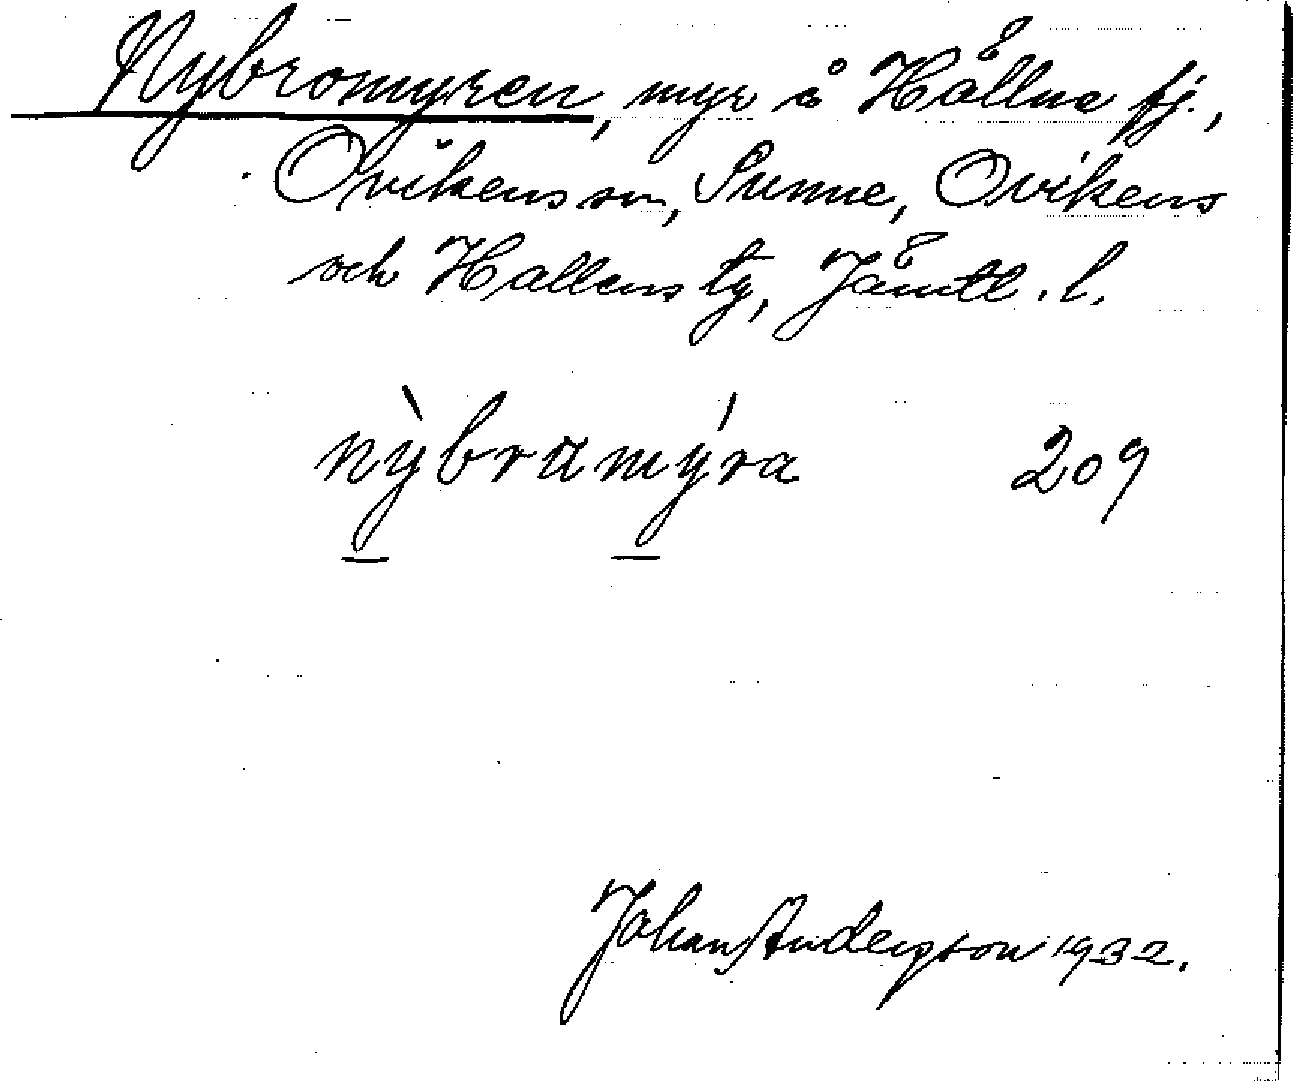 Nybromyren, myr å Hållne fj.,
Ovikens sn, Sunne, Ovikens
och Hallens tg, Jämtl. l.
nỳbramýra 209
Johan Andersson 1932.